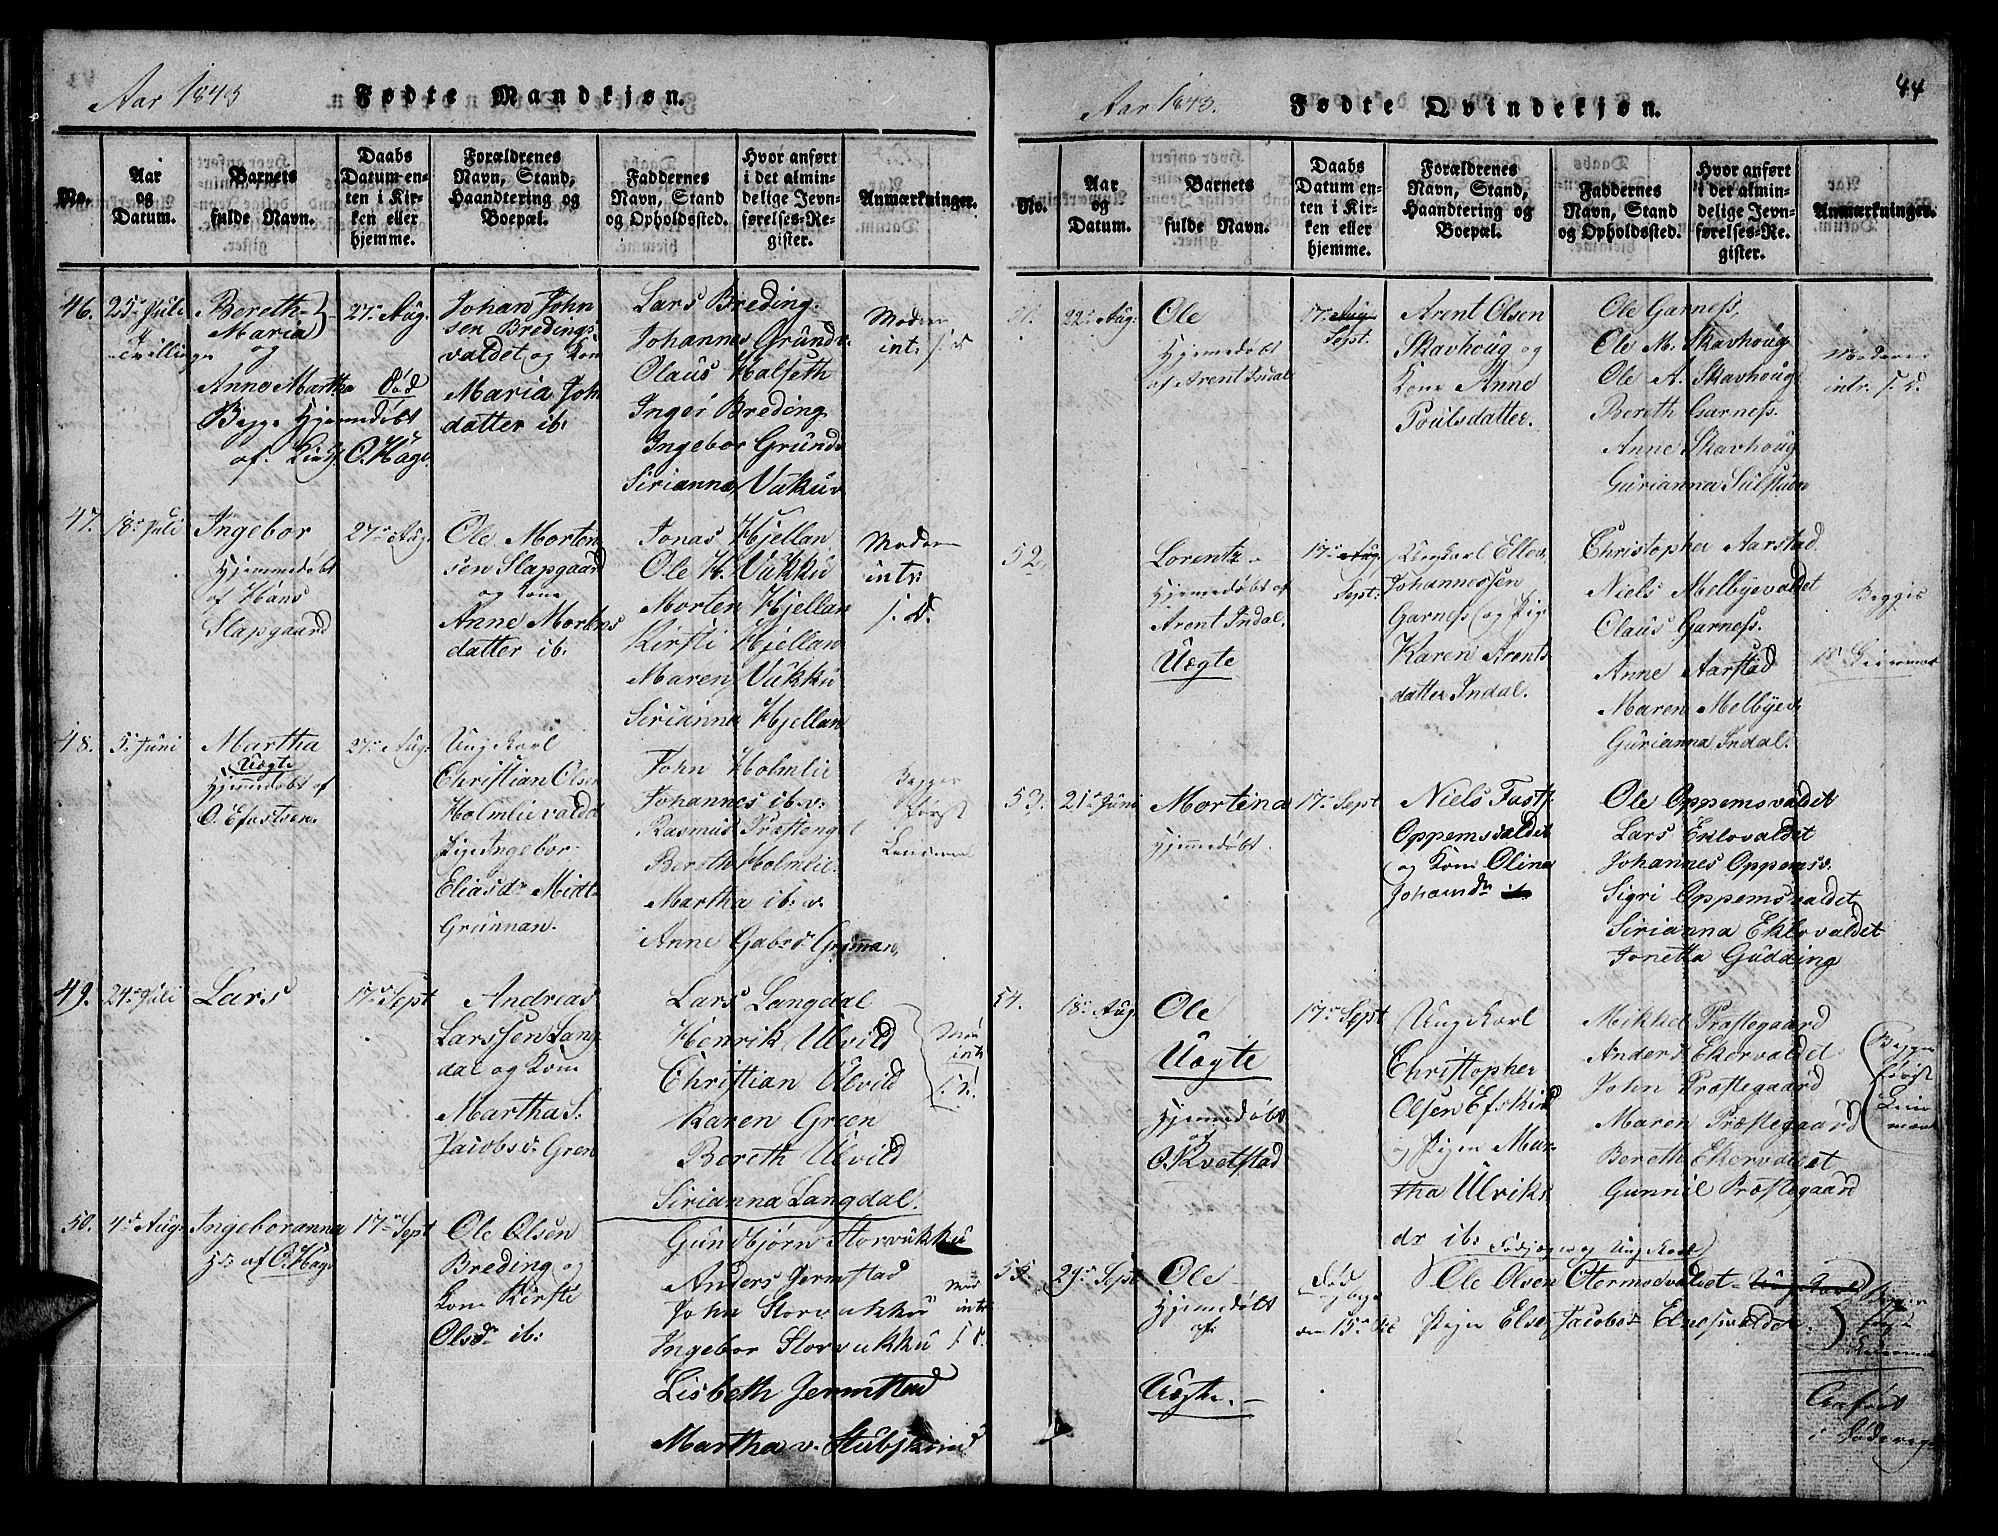 Aar 1843
Fødte Mandkjøn.
No.
Aar
og
Datum.
Barnets
fulde Navn.
Daabs
Datum en-
ten i Kir-
ken eller
hjemme.
Forældrenes
Navn, Stand,
Haandtering og
Boepæl.
Faddernes
Navn, Stand
og Opholdssted.
Hvor anført
i det almin-
delige Jevn-
førelses-Re-
gister.
Anmærkninger.
46.
25de Juli
Tvillinger
Bereth
Maria
og
Anne Martha
Begge Hjemmedøbt
af
27de Aug.
Død
O. Hage
Johan John
sen Bredings
valdet og Kone
Maria Joh
datter ib:
Lars Breding.
Johannes Grundv.
Olaus Halseth
Inger Breding
Ingebor Grundv
Sirianna Vukuv
Moderen
int: s. d.
47.
18de Juli
Ingebor
Hjemmedøbt
af Hans
Slapgaard
27de Aug.
Ole Morten
sen Slapgaard
og Kone
Anne Mortens
datter ib:
Jonas Hjellan
Ole H. Vukku
Morten Hjellan
Kirsti Hjellan
Maren Vukku
Sirianna Hjellan
Moderen
intr:
s. d.
48.
5. Juni
Martha
Uægte
Hjemmedøbt af
O. Efastsen.
27de Aug.
Ung Karl
Christian Olsen
Holmlievaldet
Pige Ingebor
Eliasdr Midt
Grunnan.
John Holmlie
Johannes ib: v.
Rasmus Præstenget
Bereth Holmlie.
Martha ib: v.
Anne Gabrs Grunnan,
Begges
først
Leiermaal
49.
24de Juli
Lars
17de Sept
Andreas
Larssen Lang
dal og Kone
Martha S.
Jacobsd. Green
Lars Langdal
Henrik Ulvild
Christian Ulvild
Karen Green
Bereth Ulvild
Sirianna Langdal.
Mod
intr
s. d.
50.
4de Aug.
Ingeboranna
Hd: af O. Hage
17de Sept
Ole Olsen
Breding og
Kone Kirsti
Olsdr ib:
Gundbjørn Storvukku
Anders Jermstad
John Storvukku
Ingebor Storvukku
Lisbeth Jermstad
Martha v. Stubskind
Mod
intr
s. d.
Aar 1843.
Fødte Qvindekjøn.
44
No.
Aar
og
Datum.
Barnets
fulde Navn.
Daabs
Datum en-
ten i Kir-
ken eller
hjemme.
Forældrenes
Navn, Stand,
Haandtering og
Boepæl.
Faddernes
Navn, Stand
og Opholdssted.
Hvor anført
i det almin-
delige Jevn-
førelses-Re-
gister.
Anmærkninger.
51.
22de Aug.
Ole
Hjemmedøbt
af Arent Indal
17de Aug
Sept.
Arent Olsen
Skavhoug og
Kone Anne
Poulsdatter.
Ole Garness,
Ole M. Skavhoug
Ole A. Skavhoug
Bereth Garness.
Anne Skavhoug
Gurianna Sulstuen
Moderen
intr. s. d.
52
Lorentz
Hjemmedøbt af
Arent Indal.
Uægte
17de Aug.
Sept:
Ungkarl Ellev
Johannessen
Garness og Pig
Karen Arents
datter Indal.
Christopher Aarstad.
Niels Melbyevaldet
Olaus Garness.
Anne Aarstad
Maren Melbyev.
Gurianna Indal.
Begges
1st Leiermaal
53.
21de Juni
Mortina
Hjemmedøbt.
17de Sept
Niels Tosts.
Oppemsvaldet
og Kone Oline
Johansdr ib
Ole Oppemsvaldet
Lars Eklovaldet
Johannes Oppemsv.
Sigri Oppemsvaldet
Sirianna Eklovaldet
Jonetta Gudding
54.
18de Aug.
Ole
Uægte
Hjemmedøbt
af
O. Kvelstad
17de Sept
Ung Karl
Christopher
Olsen Efskind
og Pigen Mar-
tha Ulriks
dr ib:
Mikkel Præstegaard
Anders Ekervaldet
John Præstegaard
Maren Præstegaard
Bereth Ekervaldet
Gunnil Præstegaard
Begges
første
Leier
maal
55.
29de Sept
Ole
Hjemmedøbt
af:
Uægte.
Død
den 15de Oct
Ung Karl
Ole Olsen Otermoevaldet Ung Karl
Pigen Else Jacobsd. Elnesvaldet.
Begges
først
Leiermaal
Anført
i Døderegs